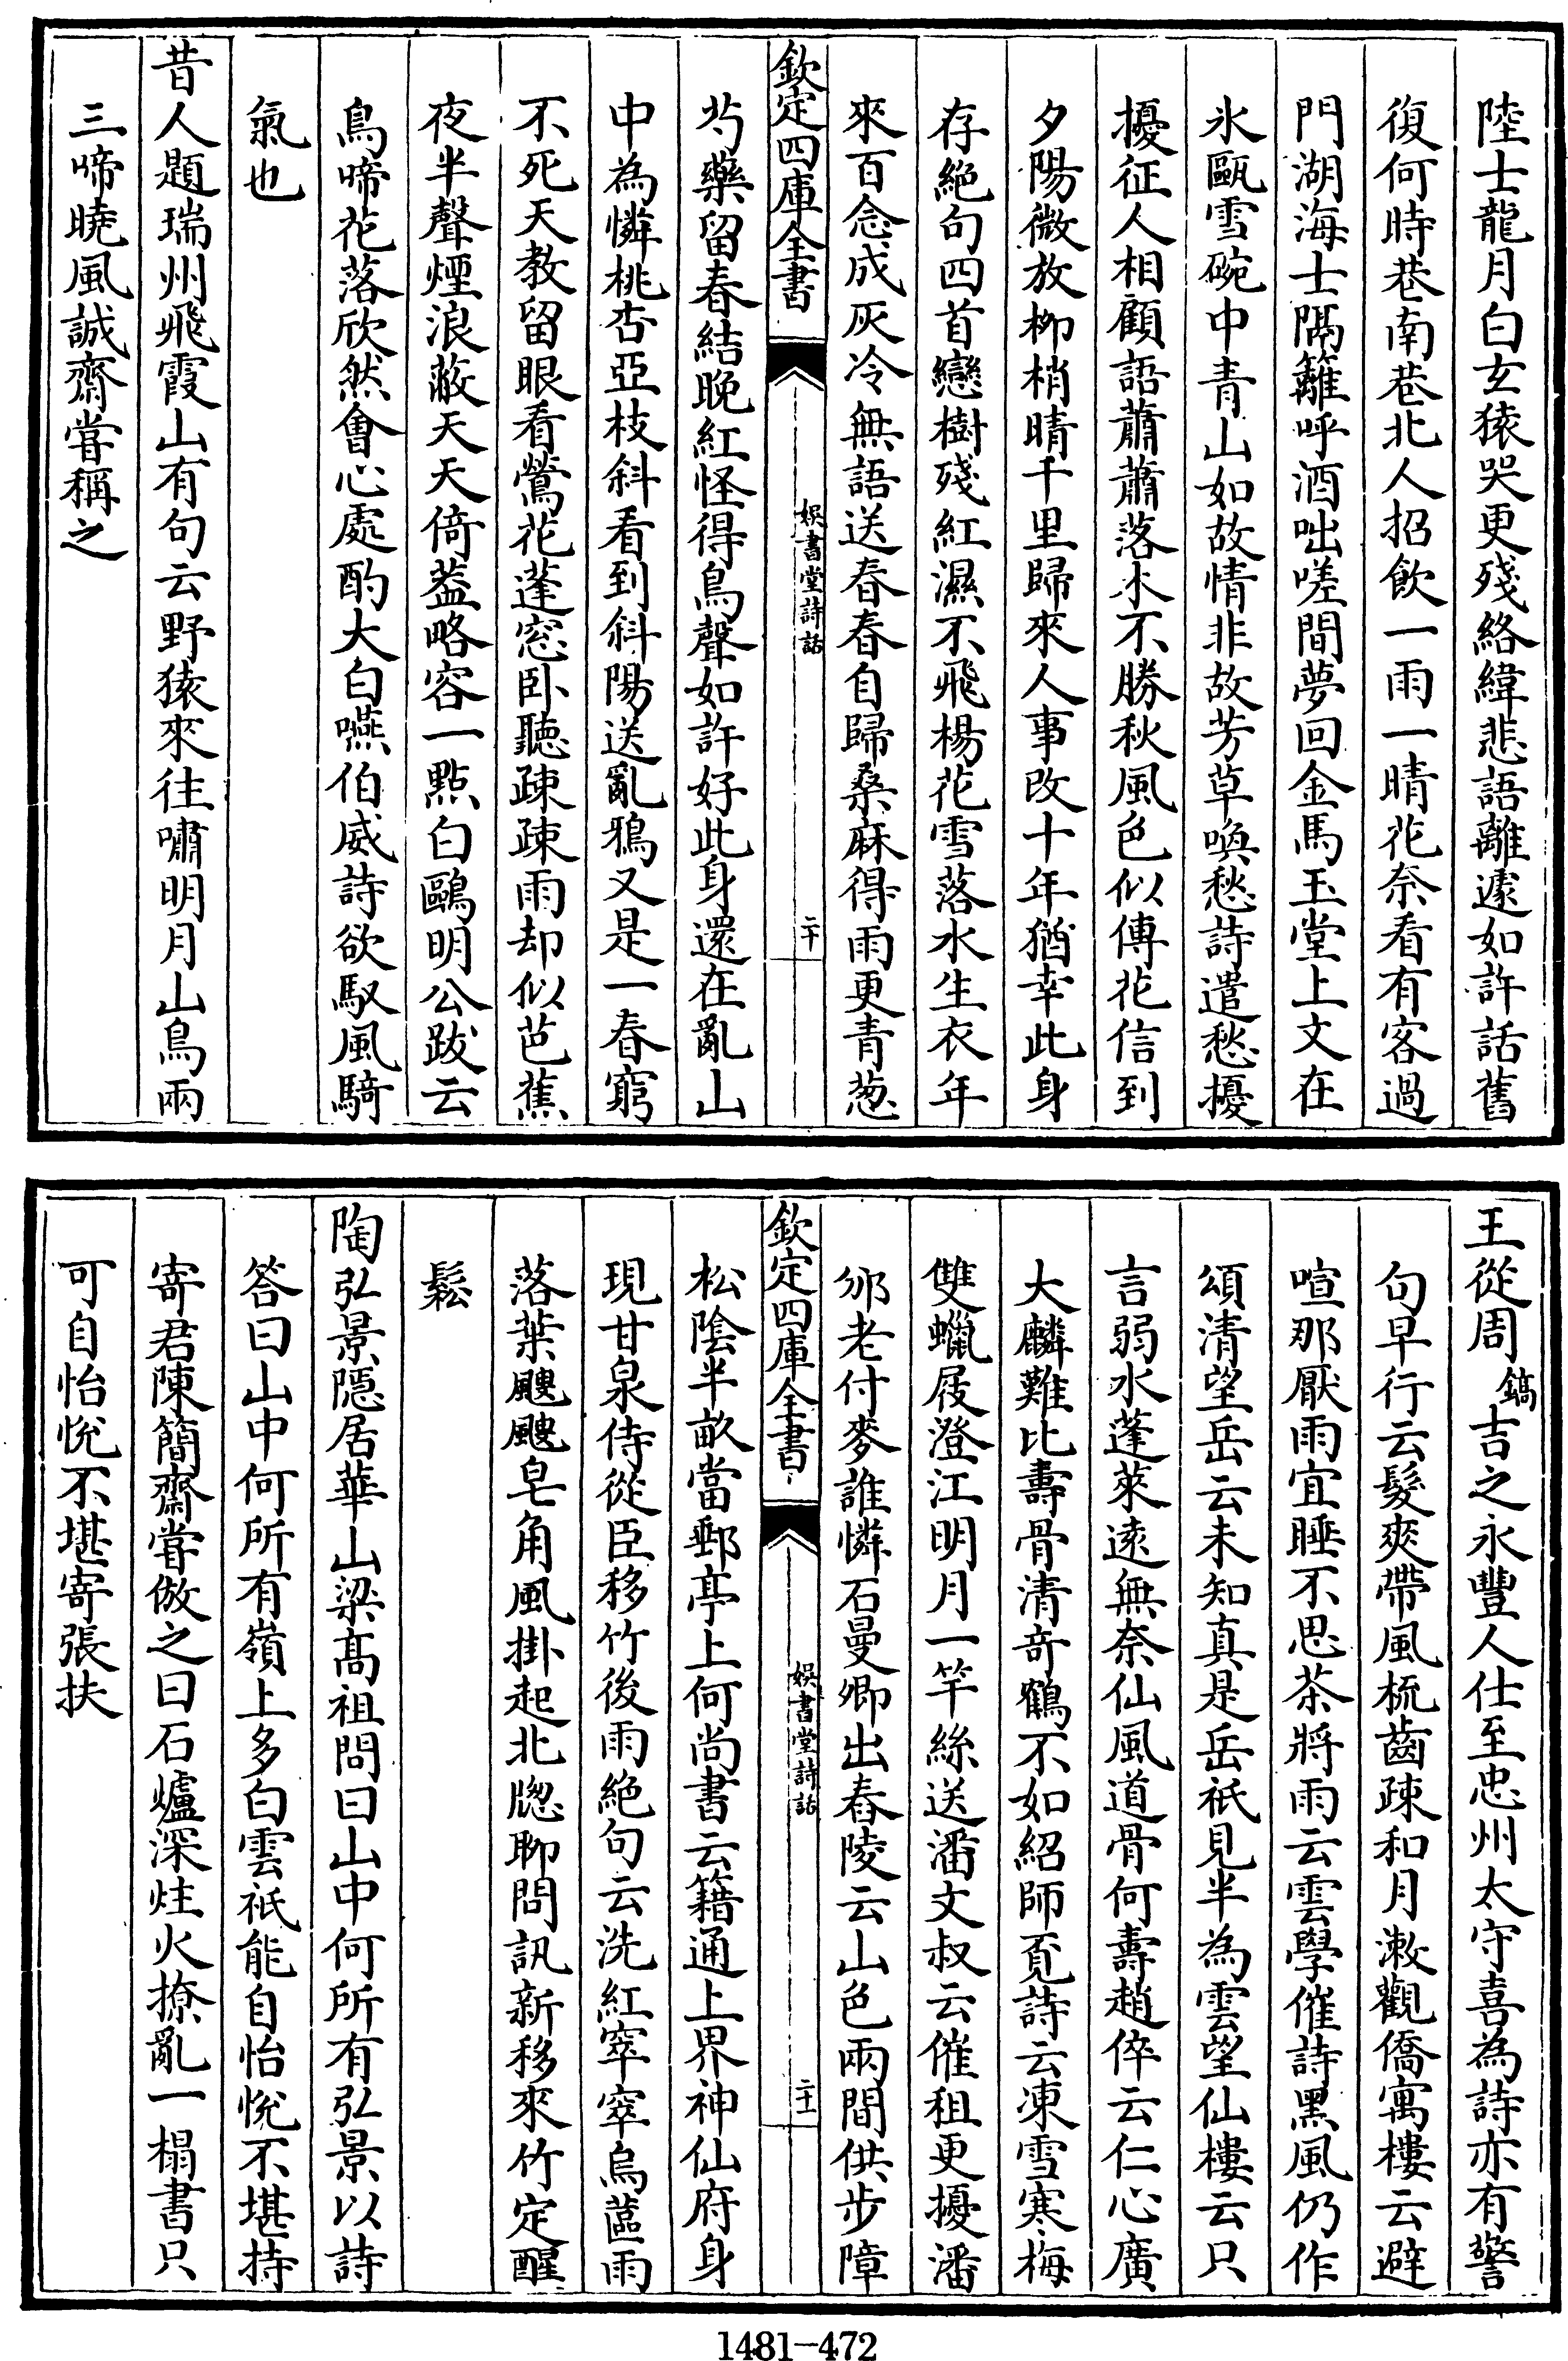 陸士龍月白玄猿哭更殘絡緯悲語離遽如許話舊
復何時巷南巷北人招飲一雨一晴花奈看有客過
門湖海士隔籬呼酒咄嗟間夢回金馬玉堂上文在
氷甌雪碗中青山如故情非故芳草喚愁詩遣愁擾
擾征人相顧語蕭蕭落木不勝秋風色似傳花信到
夕陽微放柳梢晴千里歸來人事改十年猶幸此身
存絕句四首戀樹殘紅濕不飛楊花雪落水生衣年
來百念成灰冷無語送春春自歸桑麻得雨更青葱
欽定四庫全書
娛書堂詩話
二十
芍藥留春結晚紅怪得鳥聲如許好此身還在亂山
中為憐桃杏亞枝斜看到斜陽送亂鴉又是一春窮
不死天教留眼看鶯花蓬窓卧聽疎疎雨却似芭蕉
夜半聲煙浪蔽天天倚蓋略容一點白鷗明公跋云
鳥啼花落欣然會心處酌大白嚥伯威詩欲馭風騎
氣也
昔人題瑞州飛霞山有句云野猿來往嘯明月山鳥兩
三啼曉風誠齋嘗稱之
王從周鎬吉之永豐人仕至忠州太守喜為詩亦有警
句早行云髮爽帶風梳齒疎和月漱觀僑寓樓云避
喧那厭雨宜睡不思茶將雨云雲學催詩黑風仍作
頌清望岳云未知真是岳祇見半為雲望仙樓云只
言弱水蓬萊遠無奈仙風道骨何壽趙倅云仁心廣
大麟難比壽骨清奇鶴不如紹師覓詩云凍雪寒梅
雙蠟屐澄江明月一竿絲送潘文叔云催租更擾潘
邠老付麥誰憐石曼卿出舂陵云山色兩間供步障
欽定四庫全書
娛書堂詩話
二十一
松陰半畝當郵亭上何尚書云籍通上界神仙府身
現甘泉侍從臣移竹後雨絕句云洗紅窣窣烏藍雨
落葉颼颼皂角風掛起北牕聊問訊新移來竹定醒
鬆
陶弘景隱居華山梁髙祖問曰山中何所有弘景以詩
答曰山中何所有嶺上多白雲祇能自怡悅不堪持
寄君陳簡齋嘗倣之曰石爐深炷火撩亂一榻書只
可自怡悅不堪寄張扶
1481-472